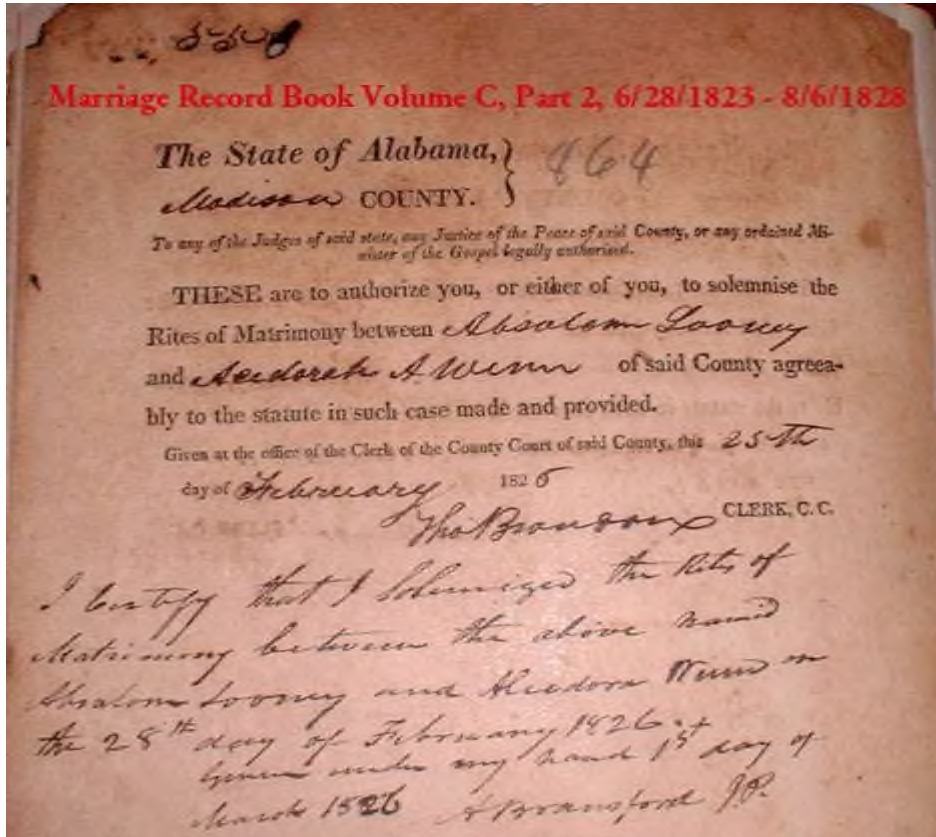 Marriage Record Book Volume C, Part 2, 6/28/1823 - 8/6/1828
The State of Alabama, } 864
Madison COUNTY.
To any of the Judges of said state, any Justice of the Peace of said County, or any ordained Mi-
nister of the Gospel legally authorised.
THESE are to authorize you, or either of you, to solemnise the
Rites of Matrimony between Absalom Looney
and A. Winn of said County agreea-
bly to the statute in such case made and provided.
Given at the office of the Clerk of the County Court of said County, this 25th
day of February 1826
Tho Brandon CLERK, C. C.
I Certify that I Solemnized the Rits of
Matrimony between the above named
Absalom Looney and Winn on
the 28th day of February 1826
Given under my hand 1st day of
March 1826 A Bransford J.P.